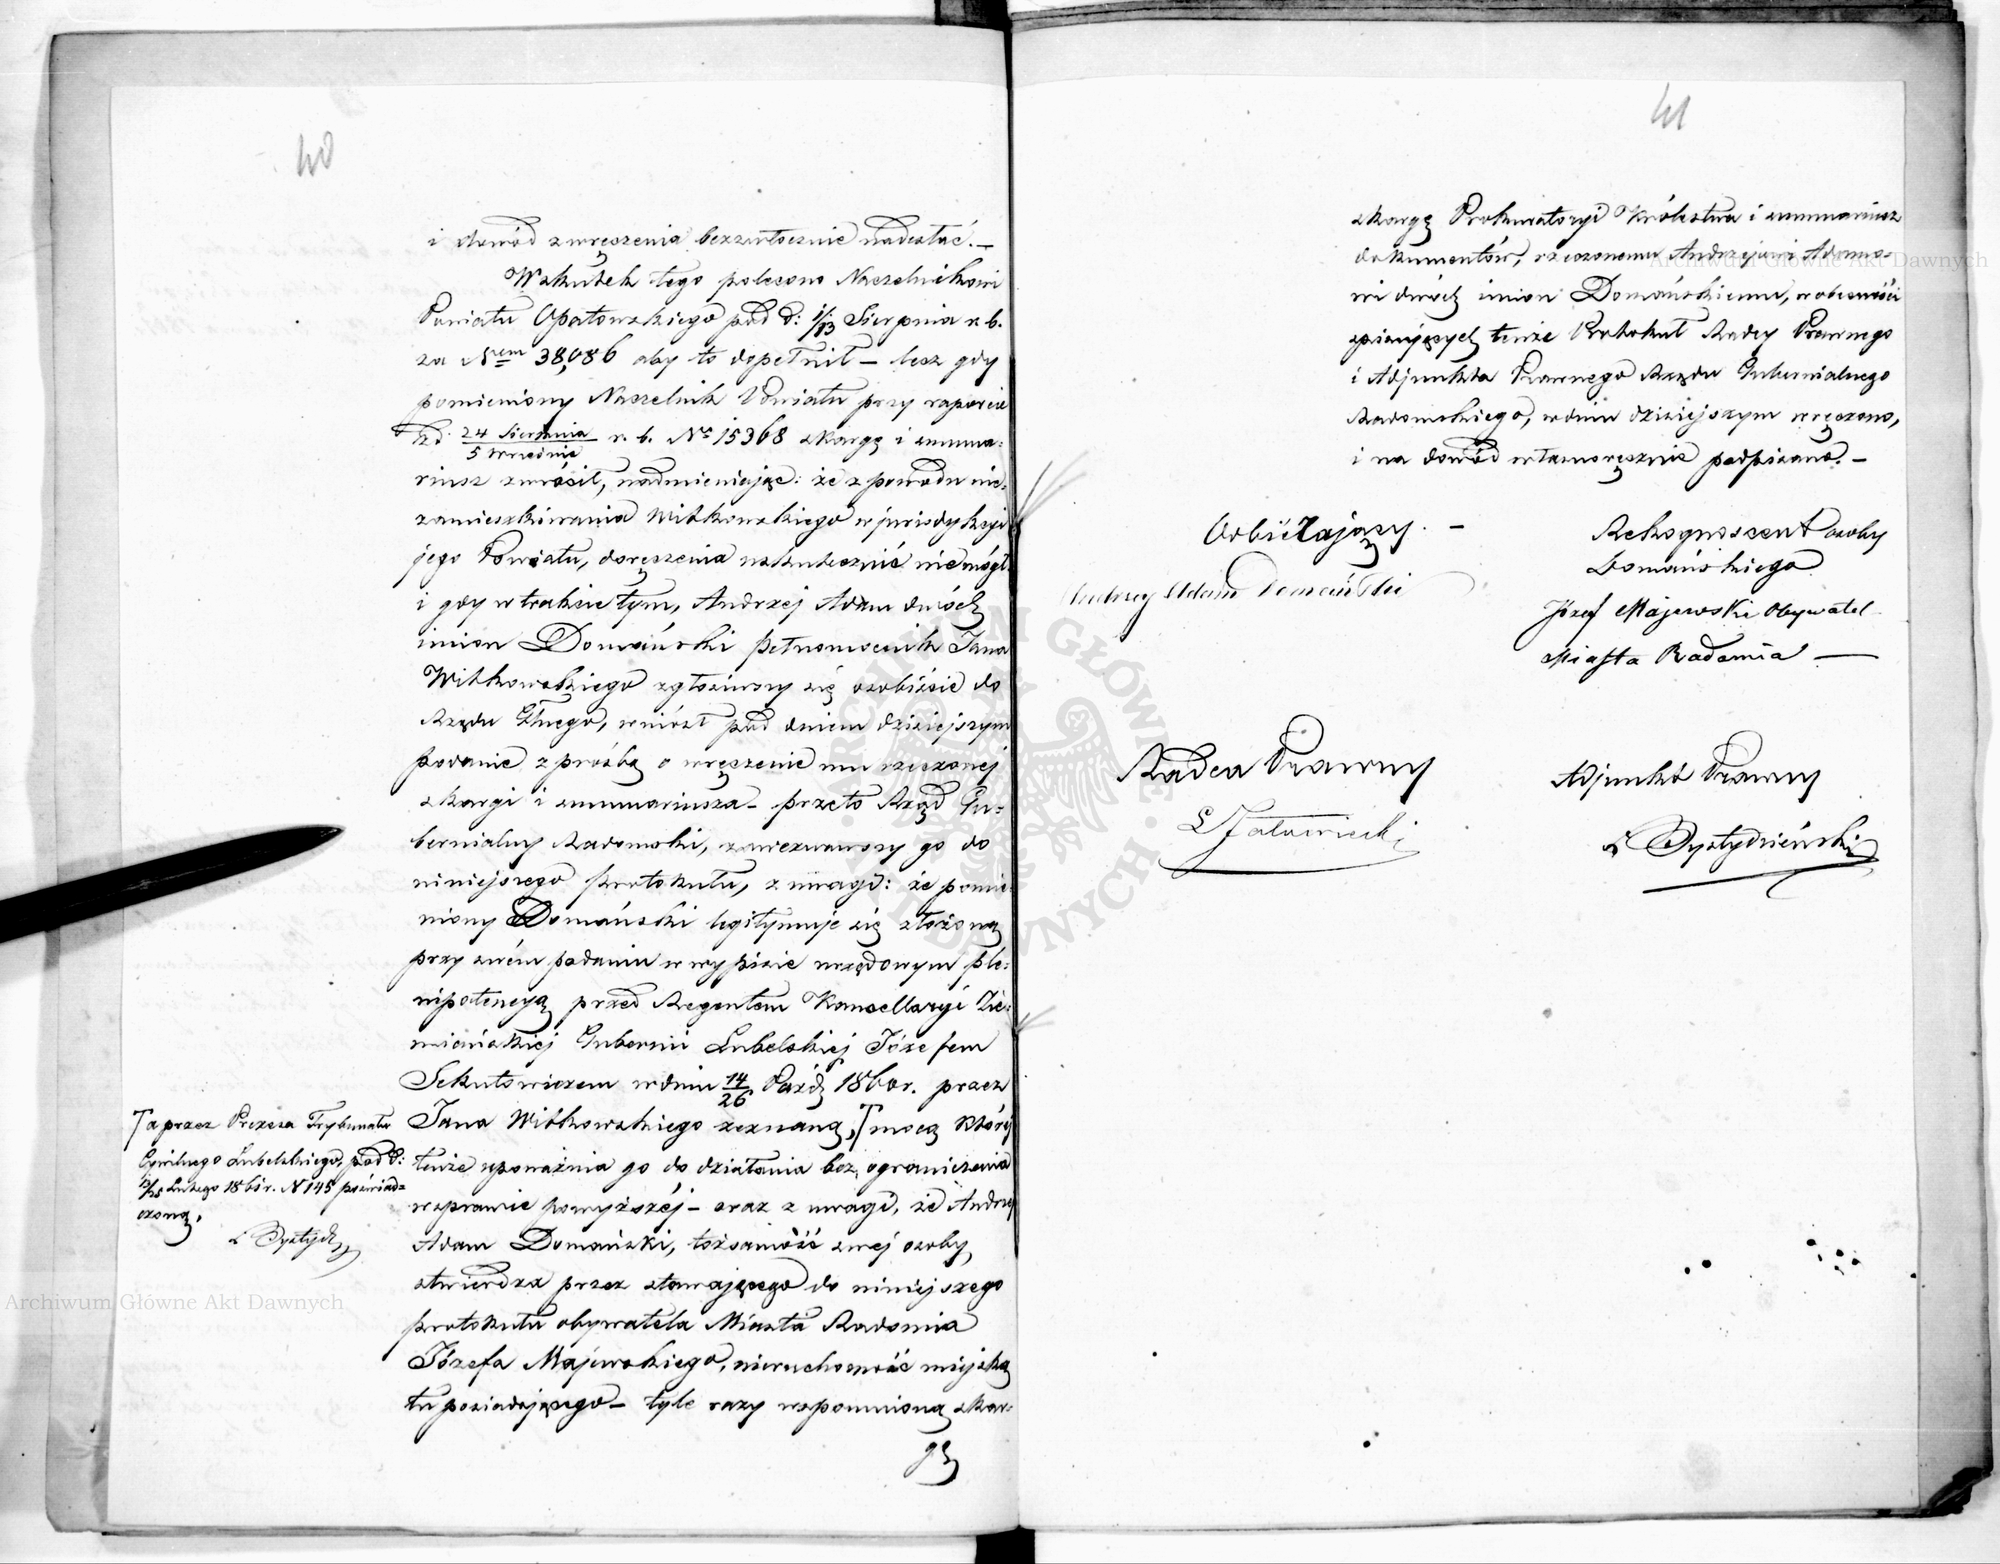 40
i dowód zwręczenia bezzwłocznie nadesłać. —
Wskutek tego polecono Naczelnikowi
Powiatu Opatowskiego pod d: 1/13 Sierpnia r. b.
za Nrem 38,086 aby to dopełnił — lecz gdy
pomieniony Naczelnik Powiatu przy raporcie
z d. 24 Sierpnia / 5 Września r. b. Nr 15368 skargę i summa=
riusz zwrócił, nadmieniając: że z powodu nie=
zamieszkiwania Witkowskiego w jurisdykcyi
jego Powiatu, doręczenia uskutecznić nie mógł.
i gdy w trakcie tym, Andrzej Adam dwóch
imion Domański pełnomocnik Jana
Witkowskiego zgłosiwszy się osobiście do
Rządu Glnego, wniósł pod dniem dzisiejszym
podanie z prośbą o wręczenie mu rzeczonej
skargi i summariusza — przeto Rząd Gu=
bernialny Radomski, zawezwawszy go do
niniejszego protokułu, z uwagi: że pomie=
niony Domański legitymuje się złożoną
przy swém podaniu w wypisie urzędowym ple=
nipotencyą przed Regentem Kancellaryi Zie=
miańskiej Gubernii Lubelskiej Józefem
Sekutowiczem w dniu 14/26 Paźdz 1860r. przez
Jana Witkowskiego zeznaną, ⌈ mocą której
tenże upoważnia go do działania bez ograniczenia
w sprawie powyższéj — oraz z uwagi, że Andrzej
Adam Domański, tożsamość swej osoby
stwierdza przez stawającego do niniejszego
protokułu obywatela Miasta Radomia
Józefa Majewskiego, nieruchomość miejską
tu posiadającego — tyle razy wspomnioną skar=
gę
⌈ a przez Prezesa Trybunału
Cywilnego Lubelskiego, pod d:
Lutego 1861r. N 145 poświad=
czoną,
41
skargę Prokuratoryi Królestwa i summariusz
dokumentów, rzeczonemu Andrzejowi Adamo=
wi dwóch imion Domańskiemu, w obecności
spisujących tenże Protokuł Radcy Prawnego
i Adjunkta Prawnego Rządu Gubernialnego
Radomskiego, w dniu dzisiejszym wręczono,
i na dowód własnoręcznie podpisano. —
Odbierający. —
Andrzej Adam Domański
Rekognoscent osoby
Domańskiego
Józef Majewski Obywatel
Miasta Radomia —
Radca Prawny
Adjunkt Prawny
Archiwum Główne Akt Dawnych
Archiwum Główne Akt Dawnych
ARCHIWUM GŁÓWNE AKT DAWNYCH